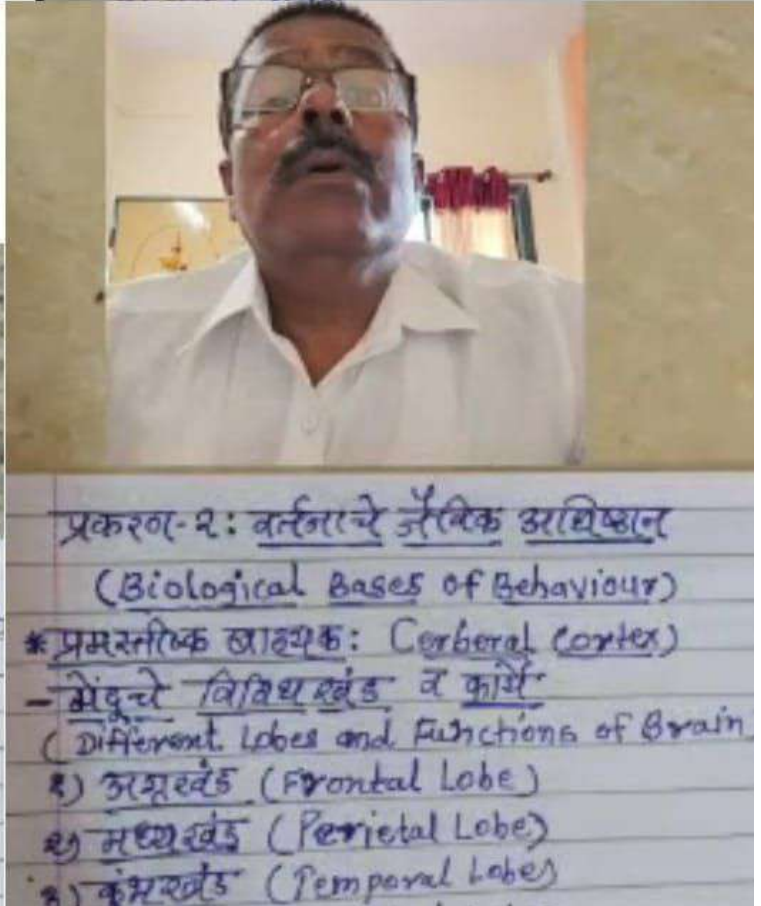 प्रकरण-२: वर्तनाचे जैविक अधिष्ठान
(Biological Bases of Behaviour)
* प्रमस्तीष्क बाह्यक: Cerberal Cortex)
- मेंदूचे विविध खंड व कार्ये
( Different Lobes and Functions of Brain
१) अग्रखंड (Frontal Lobe)
२) मध्यखंड (Perietal Lobe)
३) कुंभखंड (Temporal Lobe)